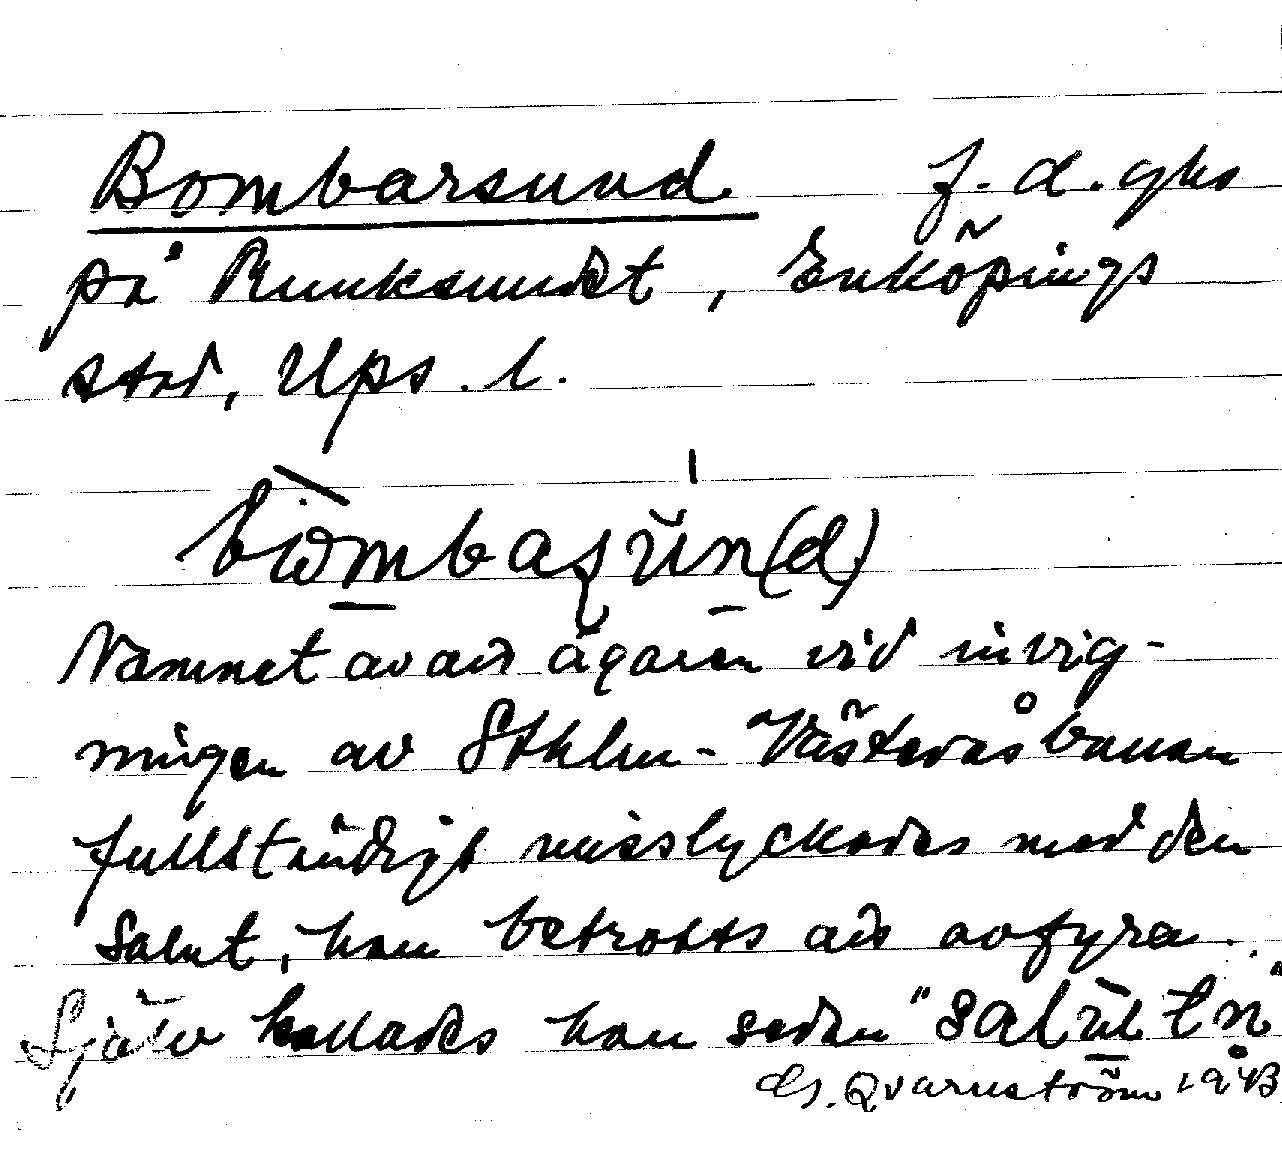 Bombarsund f.d. ghs
på Munksundet, Enköpings
stad, Ups. l.
Namnet av att ägaren vid invig-
ningen av Sthlm-Västeråsbanan
fullständigt misslyckades med den
salut, han betrotts att avfyra.
Själv kallades han sedan "
G. Qvarnström 1943